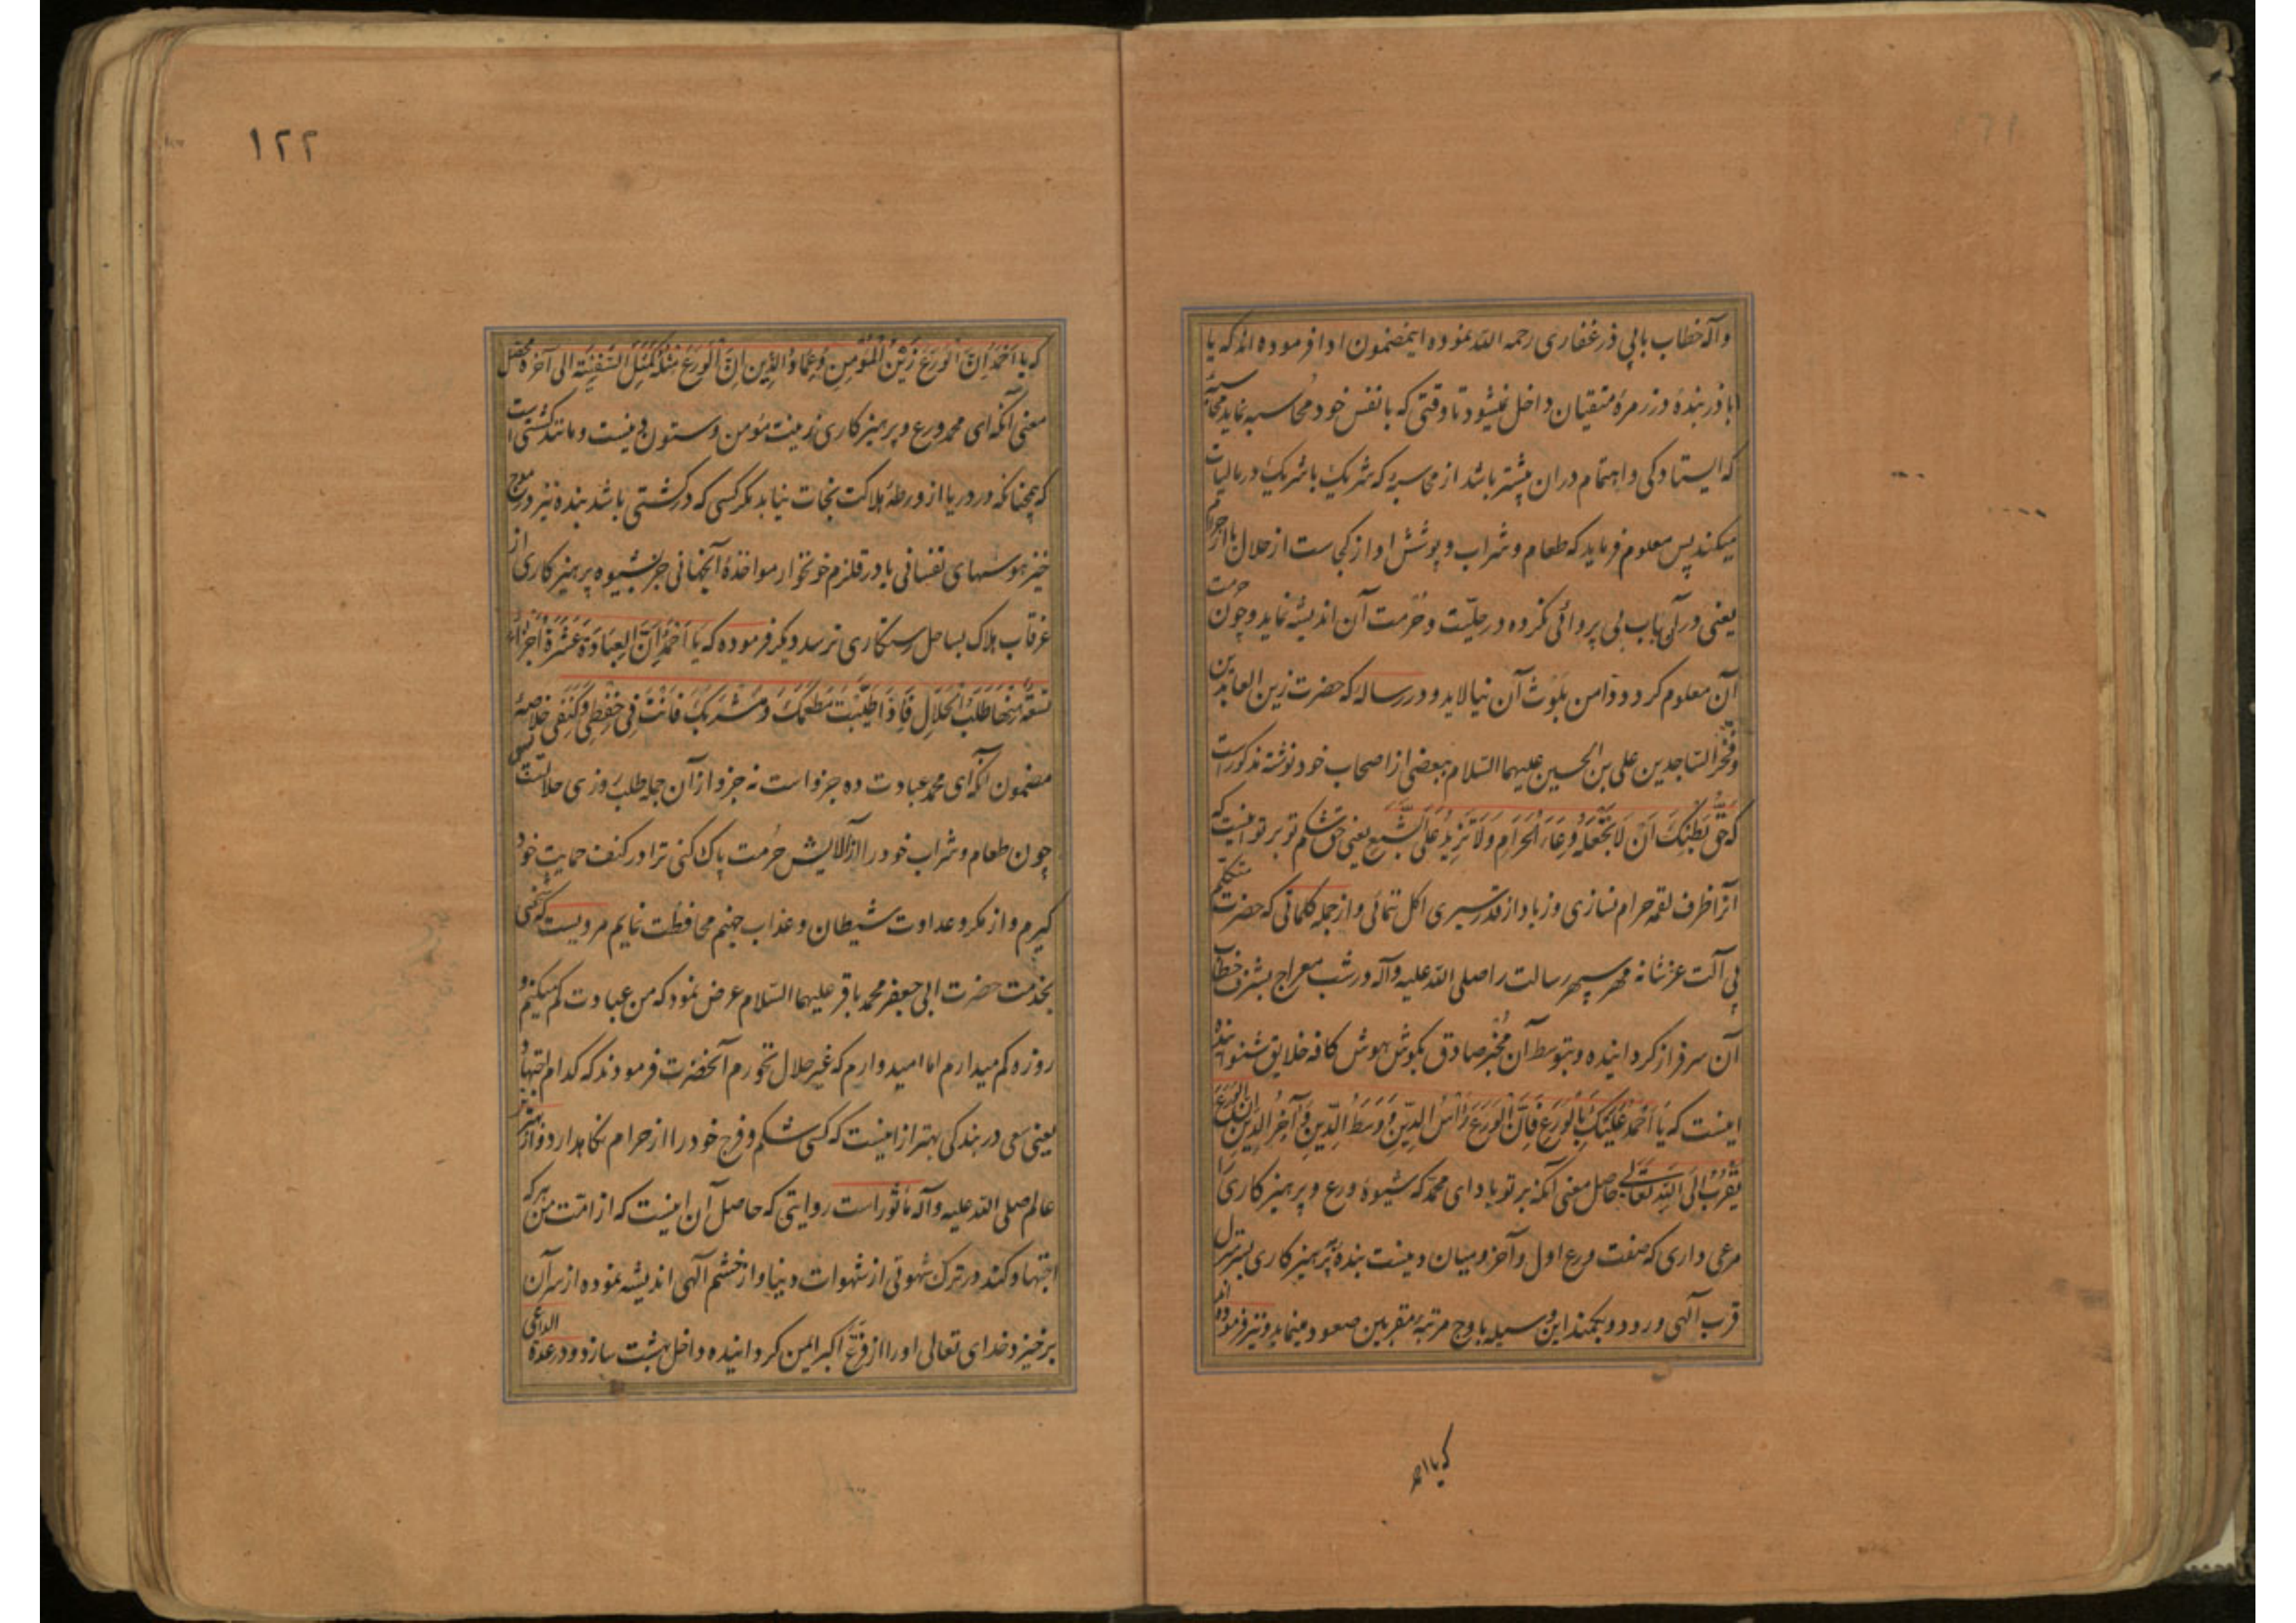 وآله خطاب بابی ذر غفاری رحمه الله نموده اینمضمون ادا فرموده اند که یا
اباذر بنده در زمرهٔ متقیان داخل نمیشود تا وقتی که با نفس خود محاسبه نماید محاسبهٔ
که ایستادکی و اهتمام در ان بیشتر باشد از محاسبهٔ که شریک با شریک در مالیات
میکند پس معلوم فرماید که طعام و شراب و پوشش او از کجاست از حلال یا از حرام
یعنی در آن باب بی پروائی نکرده در حلّیت و حُرمت آن اندیشه نماید و چون حرمت
آن معلوم کردد دامن بلوث آن نیالاید و در رسالهٔ که حضرت زین العابدین
و فخر الساجدین علی بن الحسین علیهما السلام ببعضی از اصحاب خود نوشته مذکورست
که حَقُّ بَطْنِکَ اَنْ لَا تَجْعَلَهُ وِعَاءَ الْحَرَامِ وَلَا تَزِیدُ عَلَی الشِّبَعِ یعنی حق شکم تو بر تو اینست که
آنرا ظرف لقمه حرام نسازی و زیاد از قدر سیری اکل ننمائی و از جمله کلماتی که حضرت متکلم
بی آلت عز شانه مهر سپهر رسالت را صلی الله علیه وآله در شب معراج بشرف خطاب
آن سرفراز کردانیده و بتوسط آن مخبر صادق بکوش هوش کافه خلایق شنوانیده
اینست که یَا اَحْمَدُ عَلَیْکَ بِالْوَرَعِ فَاِنَّ الْوَرَعَ رَأْسُ الدِّینِ وَ وَسَطُ الدِّینِ وَ آخِرُ الدِّینِ اِنَّ الْوَرَعَ
یُقَرِّبُ اِلَی اللهِ تَعَالَی حاصل معنی آنکه بر تو باد ای محمد که شیوهٔ ورع و پرهیز کاری را
مرعی داری که صفت ورع اول و آخر و میان دینست بندهٔ پرهیز کاری بسرمنزل
قرب آلهی رود و بکمند این وسیله باوج مرتبهٔ مقربین صعود مینماید و نیز فرموده اند
که یا احمد
۱۲۲
که یا اَحْمَدُ اِنَّ الْوَرَعَ زَیْنُ الْمُؤْمِنِ وَ عِمَادُ الدِّینِ اِنَّ الْوَرَعَ مَثَلُهُ کَمَثَلِ السَّفِینَةِ الی آخره محصل
معنی آنکه ای محمد ورع و پرهیز کاری زینت مؤمن و ستون دینست و مانند کشتی است
که همچنانکه در دریا از ورطهٔ هلاکت نجات نیابد مکر کسی که در کشتی باشد بنده نیز در موج
خیز هوسهای نفسانی یا در قلزم خونخوار مواخذهٔ آنجهانی جز بشیوه پرهیز کاری از
غرقاب هلاک بساحل رستکاری نرسد و دیکر فرموده که یَا اَحْمَدُ اِنَّ الْعِبَادَةَ عَشَرَةُ اَجْزَاءٍ
تِسْعَةٌ مِنْهَا طَلَبُ الْحَلَالِ فَاِذَا طَیَّبْتَ مَطْعَمَکَ وَ مَشْرَبَکَ فَاَنْتَ فِی حِفْظِی وَ کَنَفِی خلاصهٔ
مضمون آنکه ای محمد عبادت ده جزو است نه جزو از آن جمله طلب روزی حلالست پس
چون طعام و شراب خود را از آلایش حُرمت پاک کنی ترا در کنف حمایت خود
کیرم و از مکر و عداوت شیطان و عذاب جهنم محافظت نمایم مرویست که شخصی
بخدمت حضرت ابی جعفر محمد باقر علیهما السلام عرض نمود که من عبادت کم میکنم و
روزه کم میدارم اما امیدوارم که غیر حلال نخورم آنحضرت فرمودند که کدام اجتهاد
یعنی سعی در بندکی بهتر از اینست که کسی شکم و فرج خود را از حرام نکاهدارد و از بهتر
عالم صلی الله علیه وآله مأثور است روایتی که حاصل آن اینست که از امّت من هر که
اجتهاد کند در ترک شهوتی از شهوات دنیا و از خشم آلهی اندیشه نموده از سر آن
برخیزد خدای تعالی او را از فزع اکبر ایمن کردانیده داخل بهشت سازد و در عدة الداعی